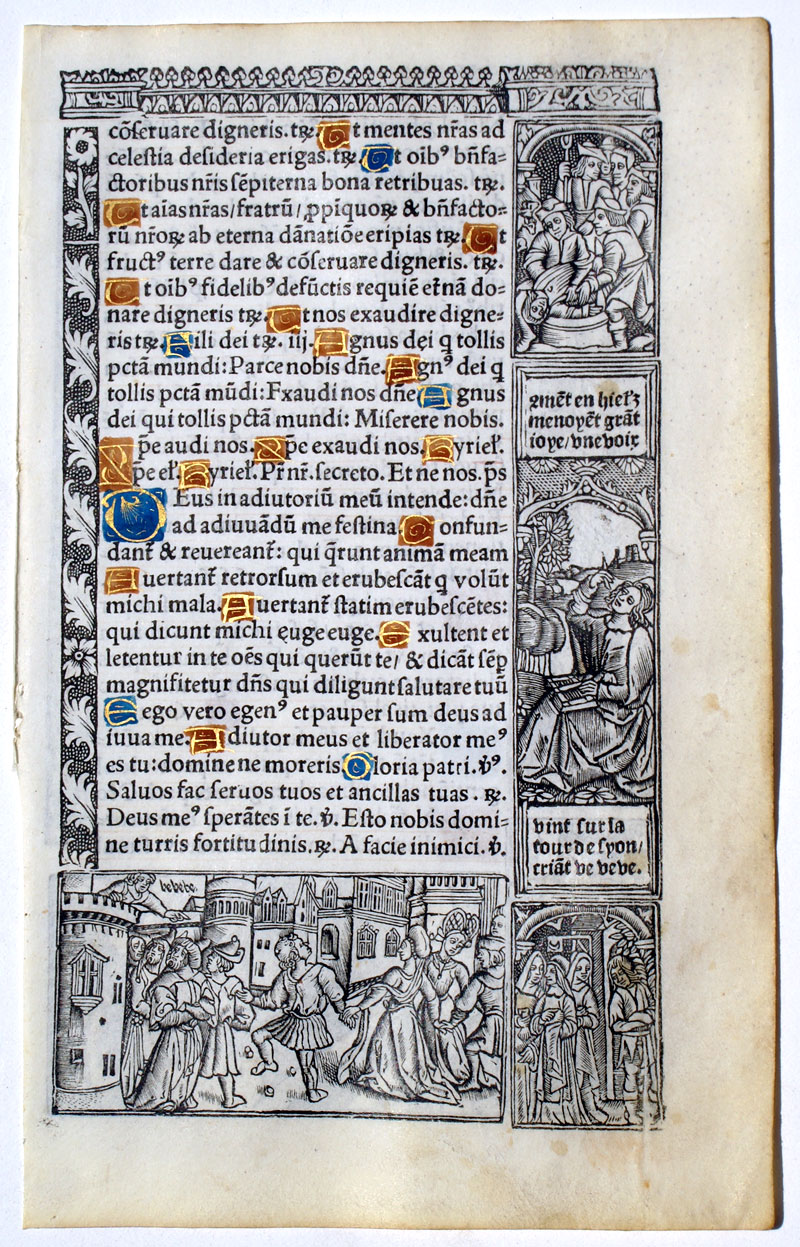 cōseruare digneris. tꝝ. Ut mentes nr̄as ad
celestia desideria erigas. tꝝ. Ut oīb⁹ bn̄fa⸗
ctoribus nr̄is sēpiterna bona retribuas. tꝝ.
Ut aīas nr̄as/ fratrū/ ꝓpīquoꝝ & bn̄facto⸗
rū nr̄oꝝ ab eterna dānatiōe eripias tꝝ. Ut
fruct⁹ terre dare & cōseruare digneris. tꝝ.
Ut oīb⁹ fidelib⁹ defūctis requiē et̄nā do⸗
nare digneris tꝝ. Ut nos exaudire digne⸗
ris tꝝ. Fili dei tꝝ. iij. Agnus dei q tollis
pctā mundi: Parce nobis dn̄e. Agn⁹ dei q
tollis pctā mūdi: Fxaudi nos dn̄e Agnus
dei qui tollis pctā mundi: Miserere nobis.
Xp̄e audi nos. Xp̄e exaudi nos. Kyrieł.
Xp̄e eł. Kyrieł. Pr̄ nr̄. secreto. Et ne nos. p̄s
DEus in adiutoriū meū intende: dn̄e
ad adiuuādū me festina Confun⸗
dant̄ & reuereant̄: qui q̄runt animā meam
Auertant̄ retrorsum et erubescāt q volūt
michi mala. Auertant̄ statim erubescētes:
qui dicunt michi ęuge euge. Exultent et
letentur in te oēs qui querūt te/ & dicāt sēp
magnifitetur dn̄s qui diligunt salutare tuū
Ego vero egen⁹ et pauper sum deus ad
iuua me. Adiutor meus et liberator me⁹
es tu: domine ne moreris Gloria patri. ℣⁹.
Saluos fac seruos tuos et ancillas tuas. ꝶ.
Deus me⁹ sperātes ī te. ℣. Esto nobis domi⸗
ne turris fortitudinis. ꝶ. A facie inimici. ℣.
amēt en hieꝛꝫ
menoyēt grāt
ioye/ vne voix
vint sur la
tour de syon/
criāt ve ve ve.
ve ve ve.